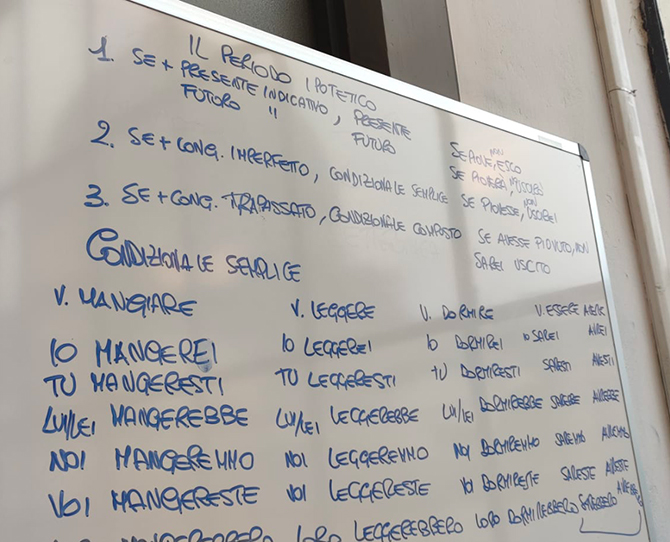 IL PERIODO IPOTETICO
1. SE + PRESENTE INDICATIVO, PRESENTE
FUTURO " FUTURO
SE PIOVE, ESCO
SE PIOVERÀ,
2. SE + CONG. IMPERFETTO, CONDIZIONALE SEMPLICE SE PIOVESSE, NON USCIREI
3. SE + CONG. TRAPASSATO, CONDIZIONALE COMPOSTO SE AVESSE PIOVUTO, NON
SAREI USCITO
CONDIZIONALE SEMPLICE
V. MANGIARE V. LEGGERE V. DORMIRE V. ESSERE AVERE
IO MANGEREI IO LEGGEREI IO DORMIREI IO SAREI AVREI
TU MANGERESTI TU LEGGERESTI TU DORMIRESTI SARESTI AVRESTI
LUI/LEI MANGEREBBE LUI/LEI LEGGEREBBE LUI/LEI DORMIREBBE SAREBBE AVREBBE
NOI MANGEREMMO NOI LEGGEREMMO NOI DORMIREMMO SAREMMO AVREMMO
VOI MANGERESTE VOI LEGGERESTE VOI DORMIRESTE SARESTE AVRESTE
LORO LEGGEREBBERO LORO DORMIREBBERO SAREBBERO